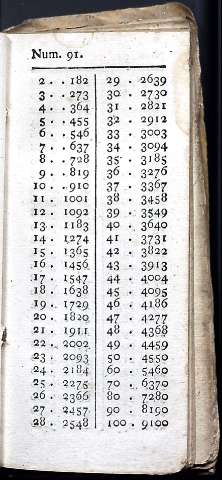 Num. 91.
2 . . 182
3 . . 273
4 . . 364
5 . . 455
6 . . 546
7 . . 637
8 . . 728
9 . . 819
10 . . 910
11 . 1001
12 . 1092
13 . 1183
14 . 1274
15 . 1365
16 . 1456
17 . 1547
18 . 1638
19 . 1729
20 . 1820
21 . 1911
22 . 2002
23 . 2093
24 . 2184
25 . 2275
26 . 2366
27 . 2457
28 . 2548
29 . 2639
30 . 2730
31 . 2821
32 . 2912
33 . 3003
34 . 3094
35 . 3185
36 . 3276
37 . 3367
38 . 3458
39 . 3549
40 . 3640
41 . 3731
42 . 3822
43 . 3913
44 . 4004
45 . 4095
46 . 4186
47 . 4277
48 . 4368
49 . 4459
50 . 4550
60 . 5460
70 . 6370
80 . 7280
90 . 8190
100 . 9100